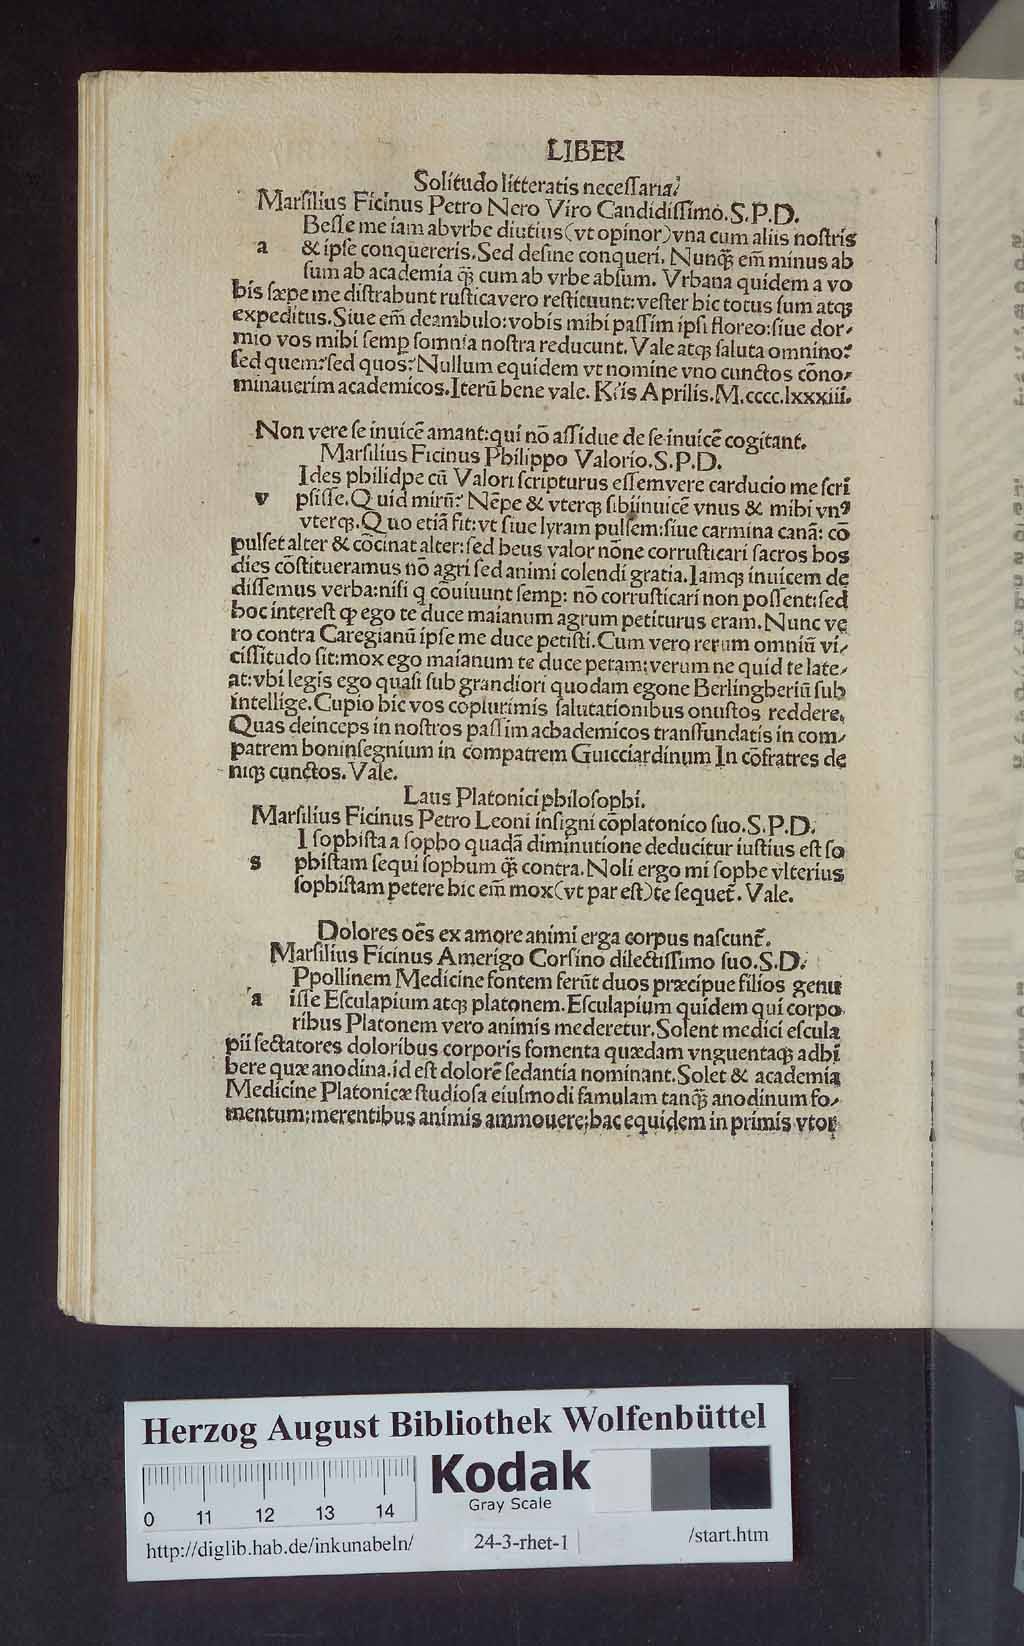 LIBER
Solitudo litteratis necessaria.
Marsilius Ficinus Petro Nero Viro Candidissimo.S.P.D.
Besse me iam ab vrbe diutius (vt opinor) vna cum aliis nostris
a & ipse conquereris. Sed desine conqueri. Nunq̃ em̃ minus ab
sum ab academia q̃ cum ab vrbe absum. Vrbana quidem a vo
bis sæpe me distrahunt rustica vero restituunt: vester hic totus sum atq;
expeditus. Siue em̃ deambulo: vobis mihi passim ipsi floreo: siue dor-
mio vos mihi semp somnia nostra reducunt. Vale atq; saluta omnino:
sed quem? sed quos? Nullum equidem vt nomine vno cunctos cõno-
minauerim academicos. Iterũ bene vale. Kl'is Aprilis. M.cccc.lxxxiii.
Non vere se inuicẽ amant: qui nõ assidue de se inuicẽ cogitant.
Marsilius Ficinus Philippo Valorio.S.P.D.
Ides philidpe cũ Valori scripturus essem vere carducio me scri
v psisse. Quid mirũ? Nẽpe & vterq; sibi inuicẽ vnus & mihi vnꝰ
vterq;. Quo etiã fit: vt siue lyram pulsem: siue carmina canã: cõ
pulset alter & cõcinat alter: sed heus valor nõne corrusticari sacros hos
dies cõstitueramus nõ agri sed animi colendi gratia. Iamq; inuicem de
dissemus verba: nisi q cõuiuunt semp: nõ corrusticari non possent: sed
hoc interest ꝙ ego te duce maianum agrum petiturus eram. Nunc ve
ro contra Caregianũ ipse me duce petisti. Cum vero rerum omniũ vi-
cissitudo sit: mox ego maianum te duce petam: verum ne quid te late-
at: vbi legis ego quasi sub grandiori quodam egone Berlingheriũ sub
intellige. Cupio hic vos coplurimis salutationibus onustos reddere.
Quas deinceps in nostros passim achademicos transfundatis in com-
patrem boninsegnium in compatrem Guicciardinum In cõfratres de
niq; cunctos. Vale.
Laus Platonici philosophi.
Marsilius Ficinus Petro Leoni insigni cõplatonico suo.S.P.D.
I sophista a sopho quadã diminutione deducitur iustius est so
s phistam sequi sophum q̃ contra. Noli ergo mi sophe vlterius
sophistam petere hic em̃ mox (vt par est) te sequet̃. Vale.
Dolores oẽs ex amore animi erga corpus nascunt̃.
Marsilius Ficinus Amerigo Corsino dilectissimo suo.S.D.
Ppollinem Medicine fontem ferũt duos præcipue filios genu
a isse Esculapium atq; platonem. Esculapium quidem qui corpo
ribus Platonem vero animis mederetur. Solent medici escula
pii sectatores doloribus corporis fomenta quædam vnguentaq; adhi
bere quæ anodina. id est dolorẽ sedantia nominant. Solet & academia
Medicine Platonicæ studiosa eiusmodi famulam tanq̃ anodinum fo-
mentum: merentibus animis ammouere: hac equidem in primis vtor
Herzog August Bibliothek Wolfenbüttel
Kodak
Gray Scale
0 11 12 13 14
http://diglib.hab.de/inkunabeln/ 24-3-rhet-1 /start.htm